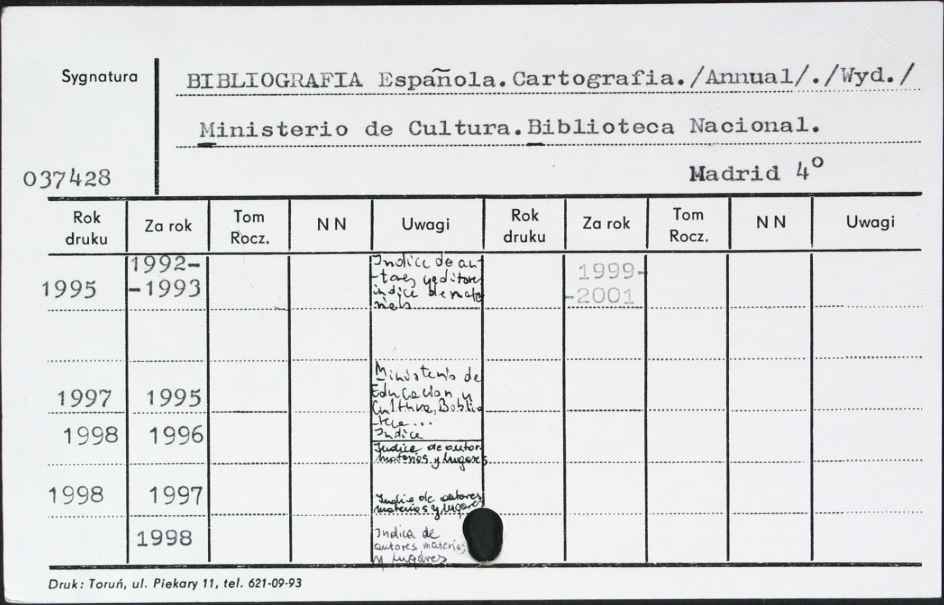 Sygnatura
BIBLIOGRAFIA Española.Cartografia./Annual/./Wyd./
Ministerio de Cultura.Biblioteca Nacional.
037428
Madrid 4°
Rok druku Za rok Tom Rocz. N N Uwagi Rok druku Za rok Tom Rocz. N N Uwagi
1992-
1995 -1993
Indice de au-
-tores y editores
indice de mate
rias
1999-
-2001
Ministerio de
1997 1995 Educacion y
Cultura, Biblio
-teca...
1998 1996 Indice
Indice de autor
materias y lugares
1998 1997 Indice de autores
materias y lugares
1998 Indice de
autores materias
y lugares
Druk: Toruń, ul. Piekary 11, tel. 621-09-93